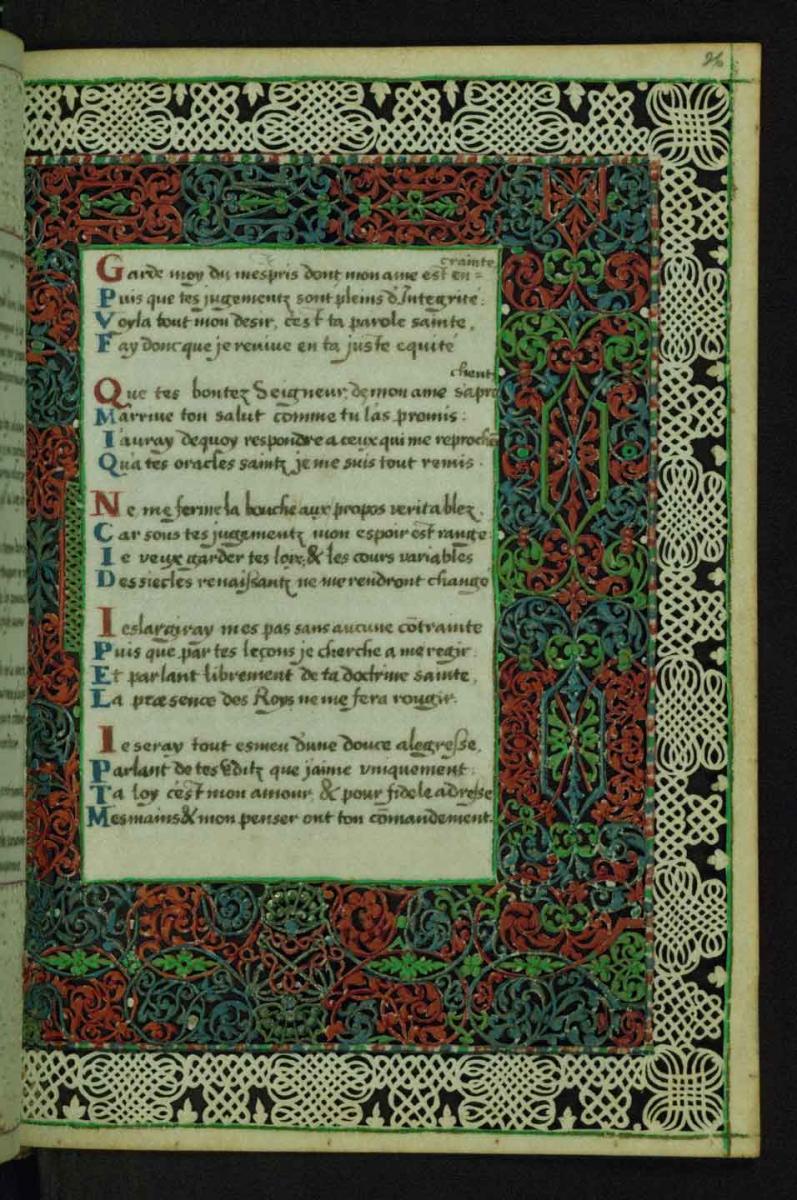 26
Garde moy du mespris dont mon ame est en=crainte
Puis que tes jugementz sont pleins d'Integrité:
Voyla tout mon desir, c'est ta parole sainte,
Fay donc que je revive en ta juste equité
Que tes bontez Seigneur, de mon ame s'aprochent
M'arrive ton salut comme tu l'as promis:
I'auray dequoy respondre a ceux qui me reprochen
Qu'a tes oracles saintz je me suis tout remis.
Ne me ferme la bouche aux propos veritablez,
Car sous tes jugementz mon espoir est rangé:
Ie veux garder tes loix, & les cours variables
Des siecles renaissantz ne me rendront changé
I'eslargiray mes pas sans aucune cõtrainte
Puis que par tes leçons je cherche a me regir:
Et parlant librement de ta doctrine sainte,
La præsence des Roys ne me fera rougir.
Ie seray tout esmeu d'une douce alegresse,
Parlant de tes Editz que j'aime vniquement:
Ta loy c'est mon amour, & pour fidele adresse
Mes mains & mon penser ont ton cõmandement.